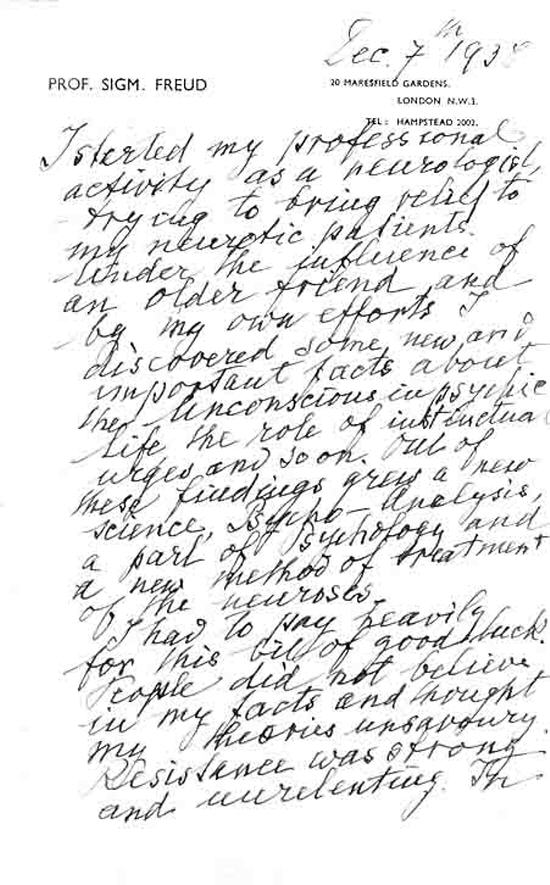 Dec. 7th 1938
PROF. SIGM. FREUD
20 MARESFIELD GARDENS.
LONDON N.W.3.
TEL: HAMPSTEAD 2002.
I started my professional
activity as a neurologist,
trying to bring relief to
my neurotic patients.
Under the influence of
an older friend and
by my own efforts I
discovered some new and
important facts about
the Unconscious in psychic
life the role of instinctual
urges and so on. Out of
these findings grew a new
science, Psycho-Analysis,
a part of Psychology and
a new method of treatment
of the neuroses.
I had to pay heavily
for this bit of good luck.
People did not believe
in my facts and thought
my theories unsavoury.
Resistance was strong
and unrelenting. In